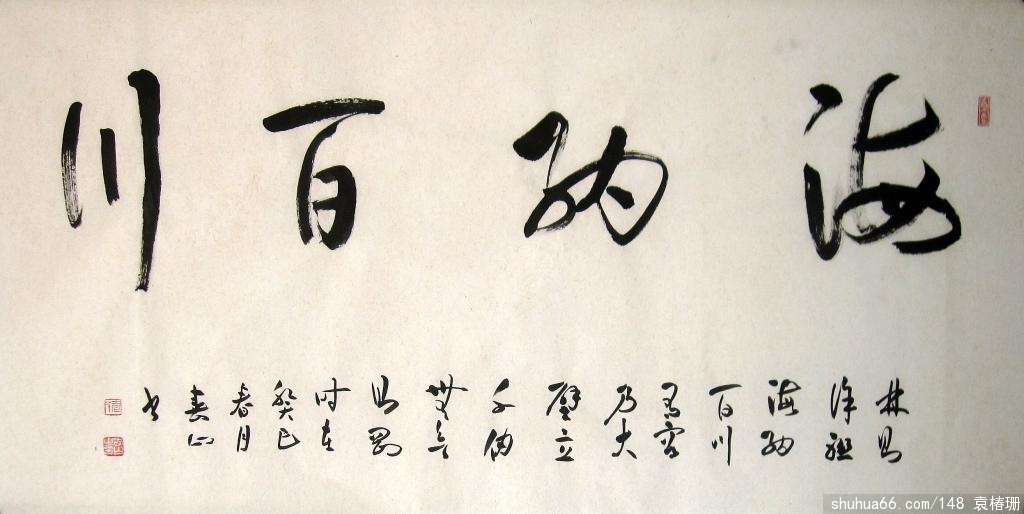 海纳百川
林則
徐
海纳
百川
有容
乃大
壁立
千仞
無欲
則剛
时在
癸巳
春月
书
shuhua66.com/148 袁椿珊